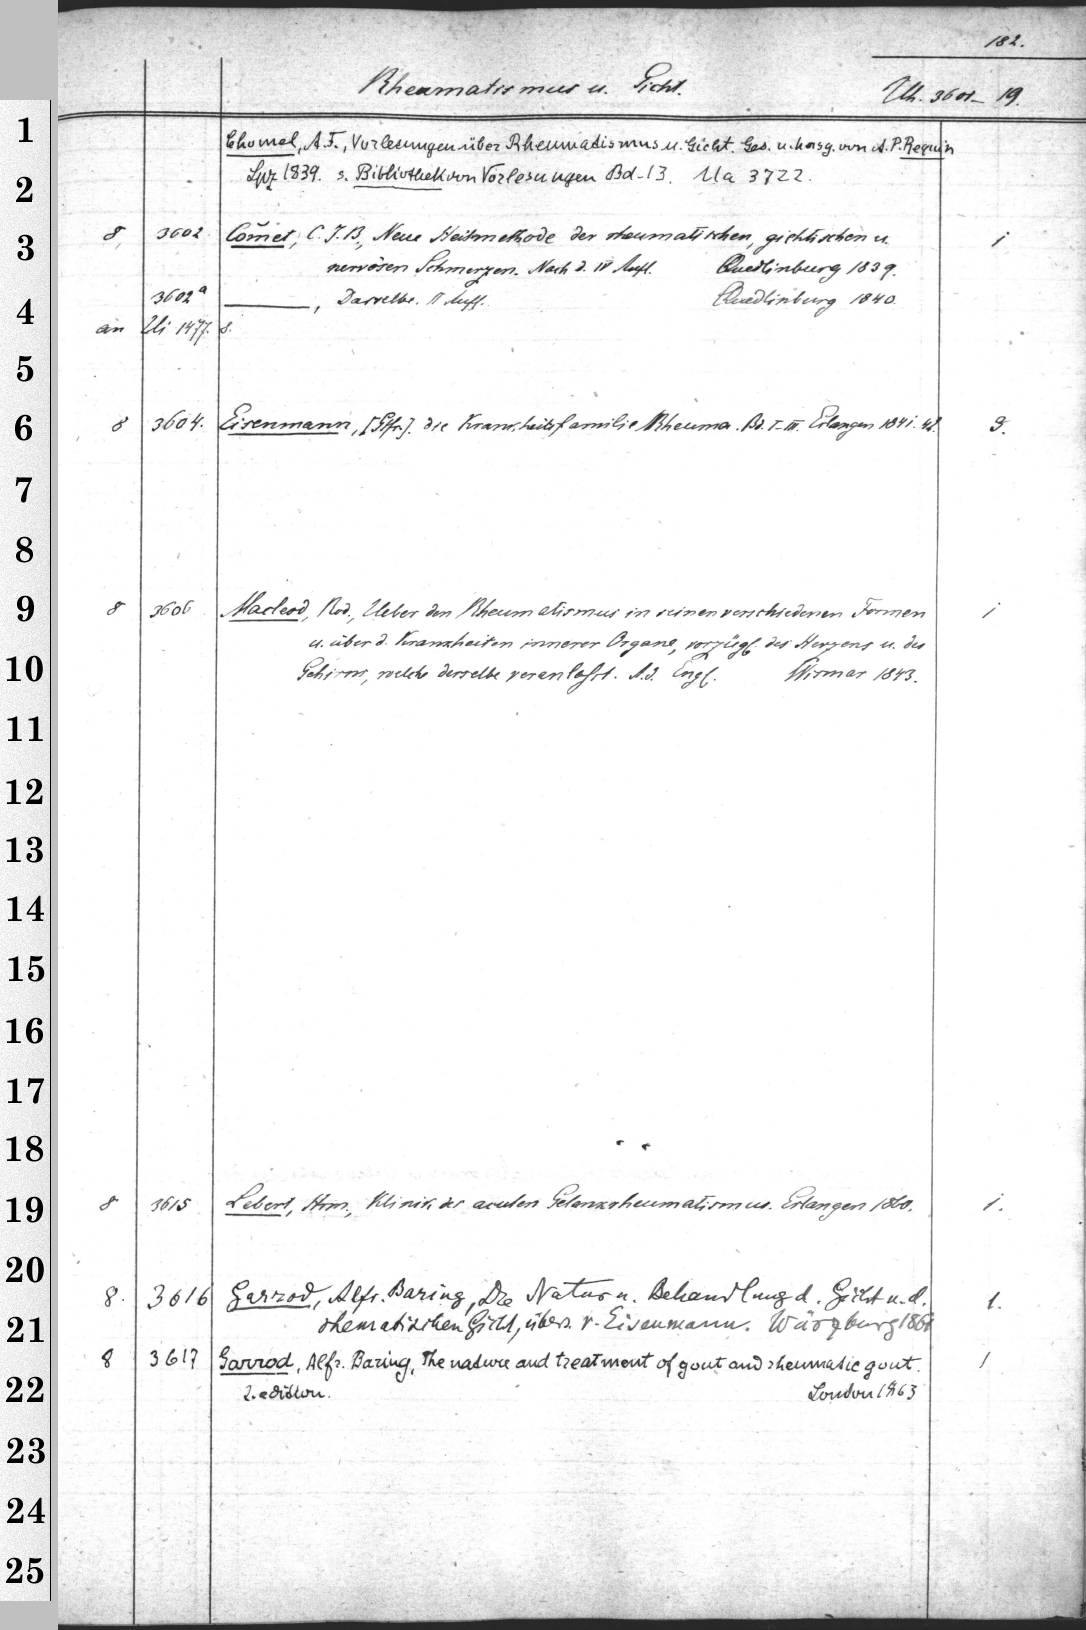 182.
Rheumatismus u. Gicht. Uh. 3601-19.
1
Chomel, A.F., Vorlesungen über Rheumatismus u. Gicht. Ges. u. hrsg. von A.P. Requin
2
Lpz 1839. s. Bibliothek von Vorlesungen Bd-13. Ua 3722.
3
8, 3602 Com̄et, C.J.B., Neue Heilmethode der rheumatischen, gichtischen u. i
nervösen Schmerzen. Nach d. IV Aufl. Quedlinburg 1839.
3602a ———, Dasselbe. II Aufl. Quedlinburg 1840.
4
an Ui 1477. 8.
5
6
8 3604. Eisenmann, [Gfr.]. die Krankheitsfamilie Rheuma. Bd. I-III. Erlangen 1841. 42. 3.
7
8
9
8 3606 Macleod, Rod., Ueber den Rheumatismus in seinen verschiedenen Formen i
u. über d. Krankheiten innerer Organe, vorzügl. des Herzens u. des
10
Gehirns, welche derselbe veranlasst. A.d. Engl. Wismar 1843.
11
12
13
14
15
16
17
18
19
8 3615 Lebert, Hrm., Klinik des acuten Gelenkrheumatismus. Erlangen 1860. i.
20
8. 3616 Garrod, Alfr. Baring, Die Natur u. Behandlung d. Gicht u. d. 1.
21
rheumatischen Gicht, übers. v. Eisenmann. Würzburg 1861
8 3617 Garrod, Alfr. Baring, The nature and treatment of gout and rheumatic gout. 1
22
2. edition. London 1863
23
24
25